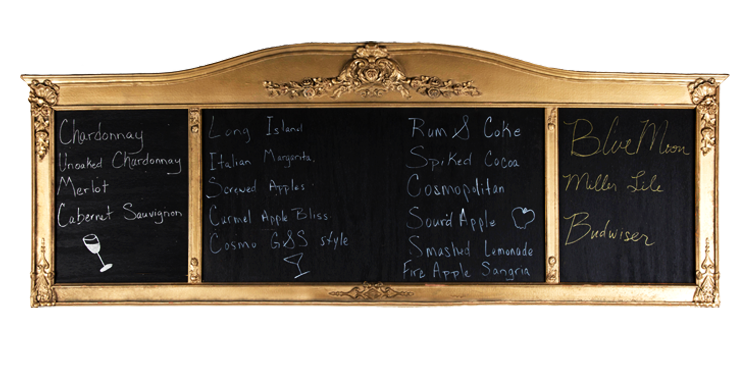 Chardonnay
Unoaked Chardonnay
Merlot
Cabernet Sauvignon
Long Island
Italian Margarita.
Screwed Apples.
Carmel Apple Bliss.
Cosmo G&S style
Rum & Coke
Spiked Cocoa
Cosmopolitan
Sour'd Apple
Smashed Lemonade
Fire Apple Sangria
Blue Moon
Miller Lite
Budwiser